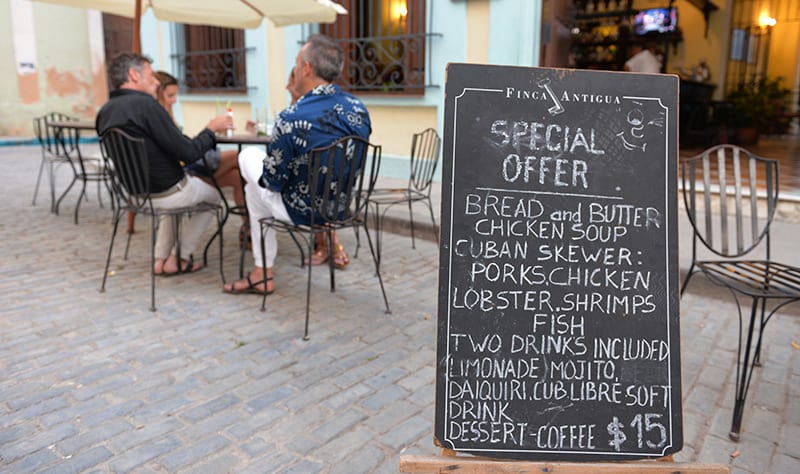 FINCA ANTIGUA
SPECIAL
OFFER
BREAD and BUTTER
CHICKEN SOUP
CUBAN SKEWER:
PORKS.CHICKEN
LOBSTER.SHRIMPS
FISH
TWO DRINKS INCLUDED
(LIMONADE) MOJITO,
DAIQUIRI.CUB LIBRE SOFT
DRINK
DESSERT-COFFEE $15